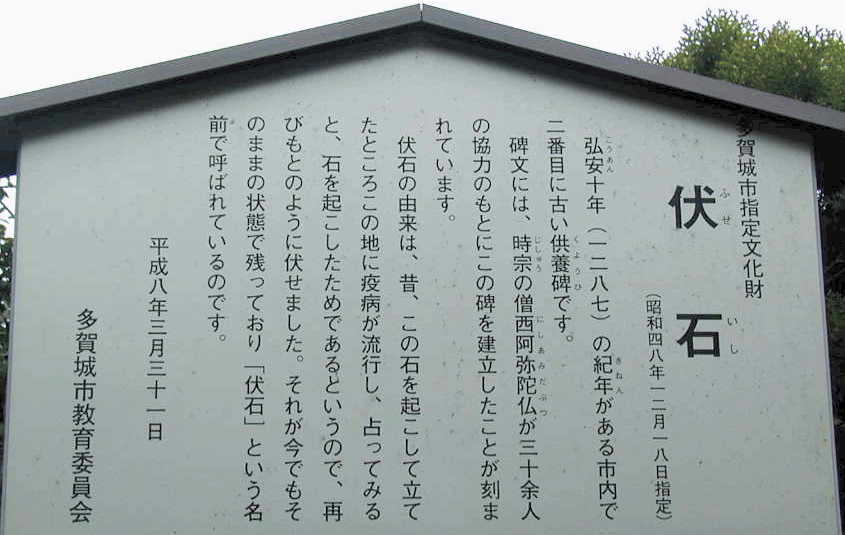 多賀城市指定文化財
伏石
ふせ
いし
（昭和四八年一二月一八日指定）
弘安十年（一二八七）の紀年がある市内で
こうあん
きねん
二番目に古い供養碑です。
くようひ
碑文には、時宗の僧西阿弥陀仏が三十余人
じしゅう
にしあみだぶつ
の協力のもとにこの碑を建立したことが刻ま
れています。
伏石の由来は、昔、この石を起こして立て
たところこの地に疫病が流行し、占ってみる
と、石を起こしたためであるというので、再
びもとのように伏せました。それが今でもそ
のままの状態で残っており「伏石」という名
前で呼ばれているのです。
平成八年三月三十一日
多賀城市教育委員会